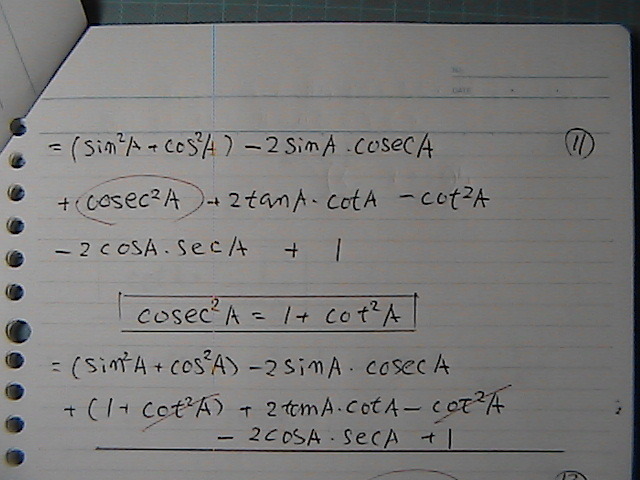 NO.
DATE
= (sin²A + cos²A) - 2 sinA · cosecA
⑪
+ cosec²A + 2tanA · cotA - cot²A
- 2 cosA · secA + 1
cosec²A = 1 + cot²A
= (sin²A + cos²A) - 2 sinA · cosecA
+ (1 + cot²A) + 2tanA · cotA - cot²A
- 2cosA · secA + 1